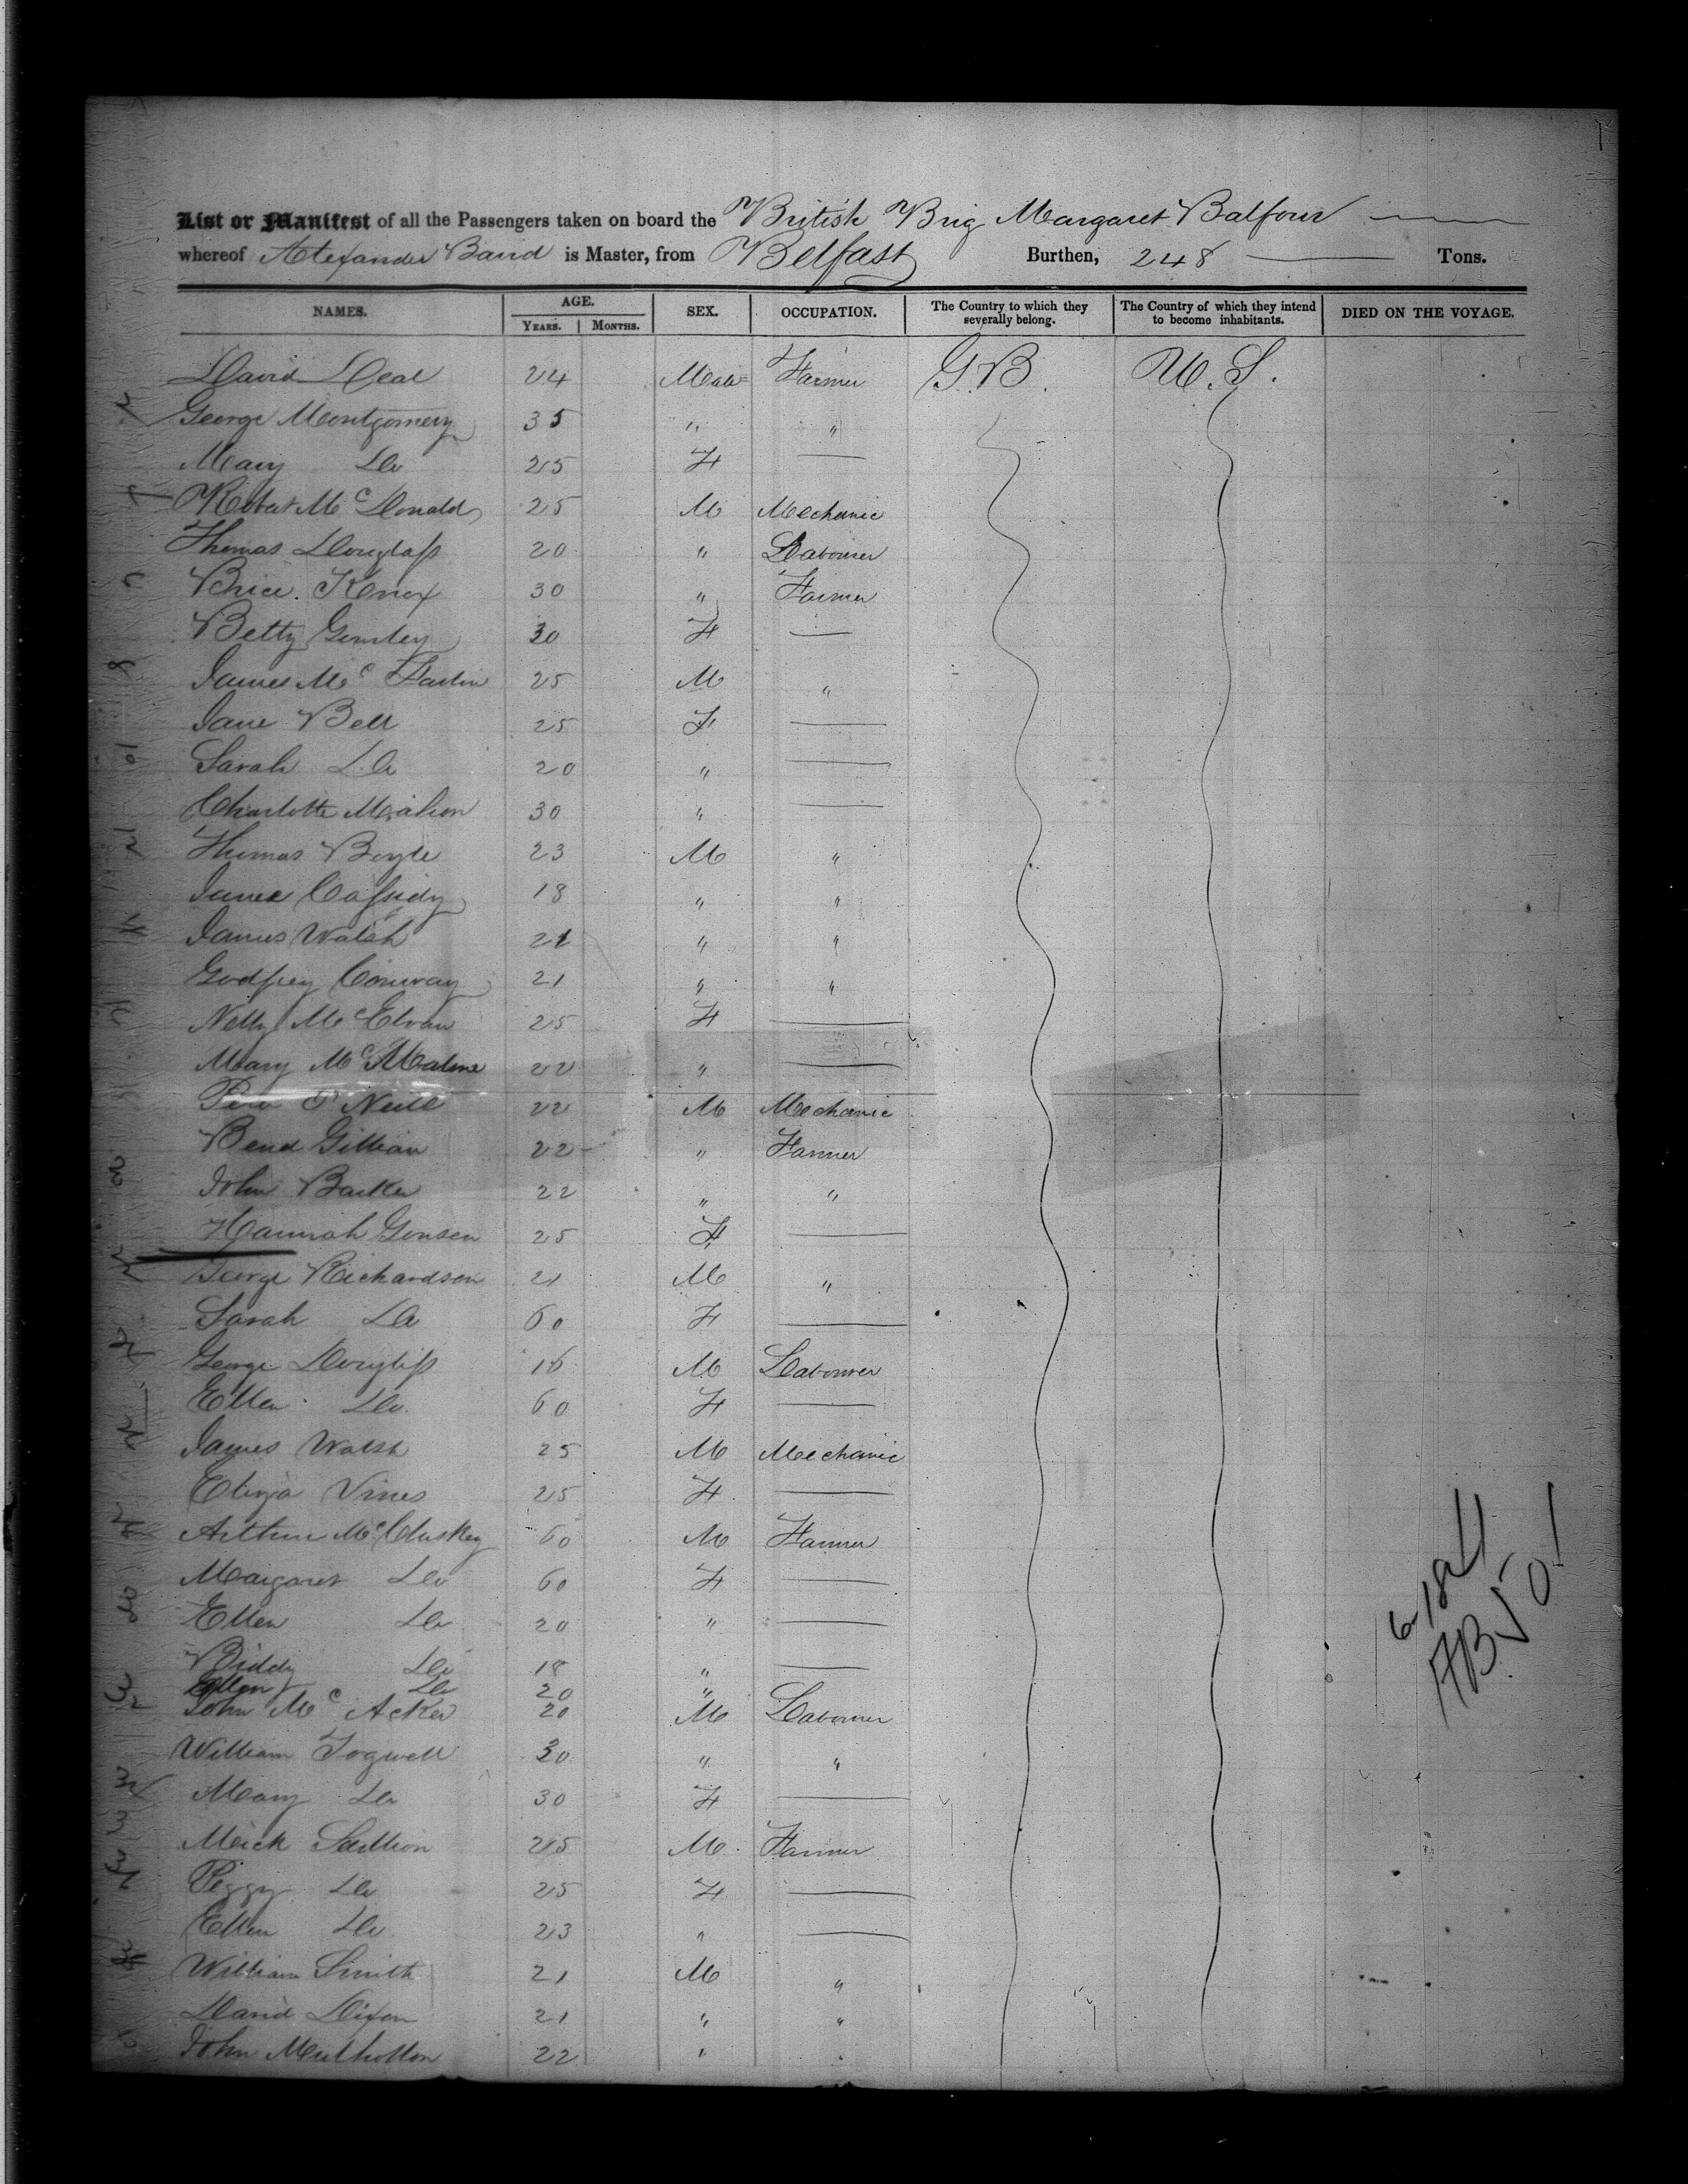 List or Manifest of all the Passengers taken on board the British Brig Margaret Balfour
whereof Alexander Baird is Master, from Belfast Burthen, 248 Tons.
NAMES. AGE. SEX. OCCUPATION. The Country to which they severally belong. The Country of which they intend to become inhabitants. DIED ON THE VOYAGE.
YEARS. MONTHS.
David 24 Male Farmer G.B. U.S.
George Montgomery 35 " "
Mary Do 25 F
Robert McDonald 25 M Mechanic
Thomas Douglass 20 " Labourer
Brice Knox 30 " Farmer
Betty 30 F
James Mc 25 M "
Jane Bell 25 F
Sarah Do 20 "
Charlotte 30 "
Thomas Boyle 23 M "
James Cassidy 18 " "
James Walsh 21 " "
Godfrey Conway 21 " "
Nelly McElvan 25 F
Mary 22 "
Peter O'Neill 22 M Mechanic
Gillian 22 " Farmer
John Barker 22 " "
Hannah 25 F
George Richardson 21 M "
Sarah Do 60 F
George 16 M Labourer
Ellen Do 60 F
James Walsh 25 M Mechanic
Eliza Vines 25 F
Arthur McCluskey 60 M Farmer
Margaret Do 60 F
Ellen Do 20 "
Biddy Do 18 "
Ellen Do 20 "
John Mc Acker 20 M Labourer
William Fogwell 30 " "
Mary Do 30 F
Mick 25 M Farmer
Peggy Do 25 F
Ellen Do 23 "
William Smith 21 M "
David Dixon 21 " "
John Mulhollon 22 " "